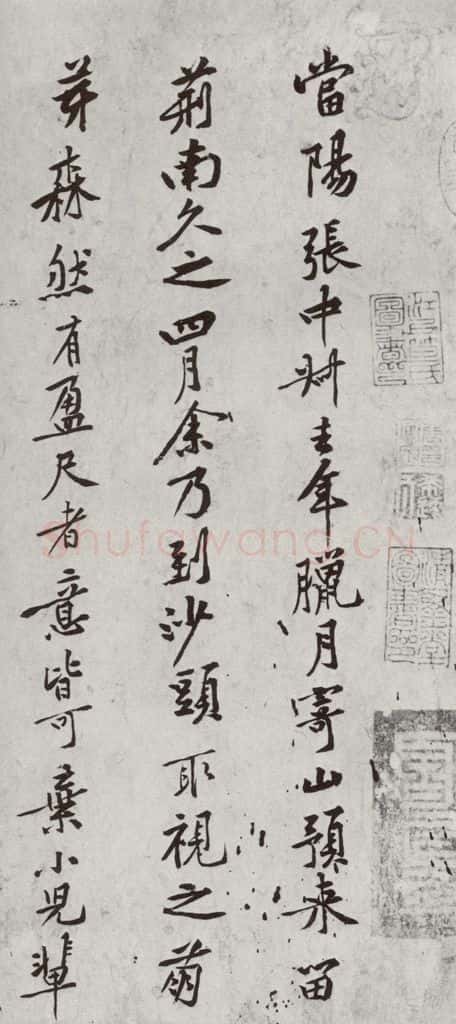 當陽張中叔去年臘月寄山預来留
荊南久之四月余乃到沙頭取視之萌
芽森然有盈尺者意皆可棄小兒輩
Shufawang.CN